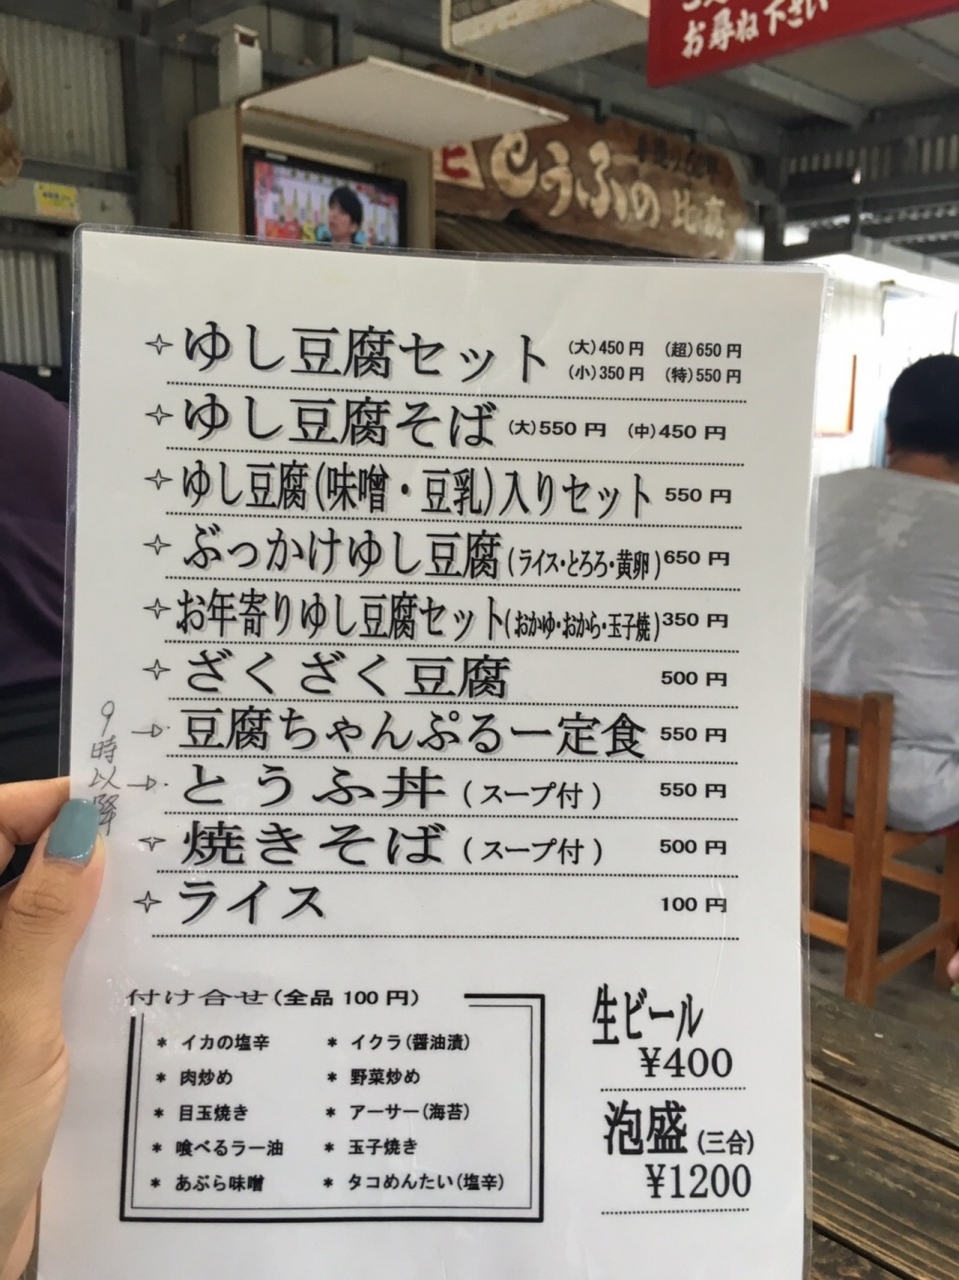 お尋ね下さい
とうふの比嘉
ゆし豆腐セット (大)450円 (超)650円
(小)350円 (特)550円
ゆし豆腐そば (大)550円 (中)450円
ゆし豆腐(味噌・豆乳)入りセット 550円
ぶっかけゆし豆腐(ライス・とろろ・黄卵)650円
お年寄りゆし豆腐セット(おかゆ・おから・玉子焼)350円
ざくざく豆腐 500円
9時以降
豆腐ちゃんぷるー定食 550円
とうふ丼(スープ付) 550円
焼きそば(スープ付) 500円
ライス 100円
付け合せ(全品100円)
* イカの塩辛 * イクラ(醤油漬)
* 肉炒め * 野菜炒め
* 目玉焼き * アーサー(海苔)
* 喰べるラー油 * 玉子焼き
* あぶら味噌 * タコめんたい(塩辛)
生ビール
¥400
泡盛(三合)
¥1200